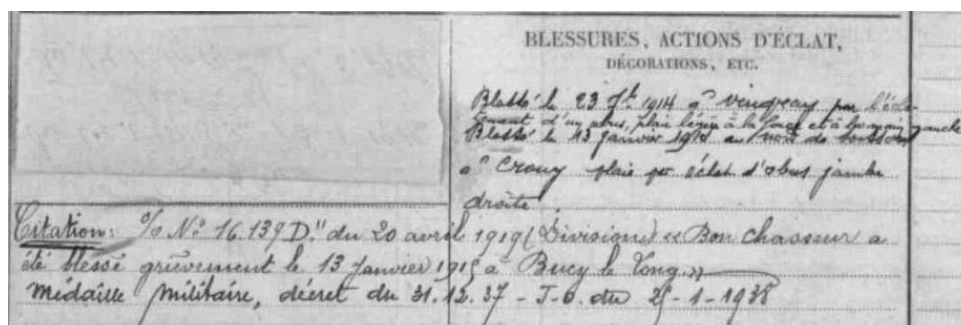 BLESSURES, ACTIONS D'ÉCLAT,
DÉCORATIONS, ETC.
Blessé le 23 7bre 1914 à Vingray par l'écla-
tement d'un obus, plaie légère à la face et à la main gauche
Blessé le 13 janvier 1915 au nord de Soissons
à Crouy plaie par éclat d'obus jambe
droite.
Citation: O/ No 16.139 D." du 20 avril 1919 (Division) « Bon chasseur a
été blessé grièvement le 13 Janvier 1915 à Bucy le Long »
Médaille Militaire, décret du 31.12.37 - J-O. du 25-1-1938